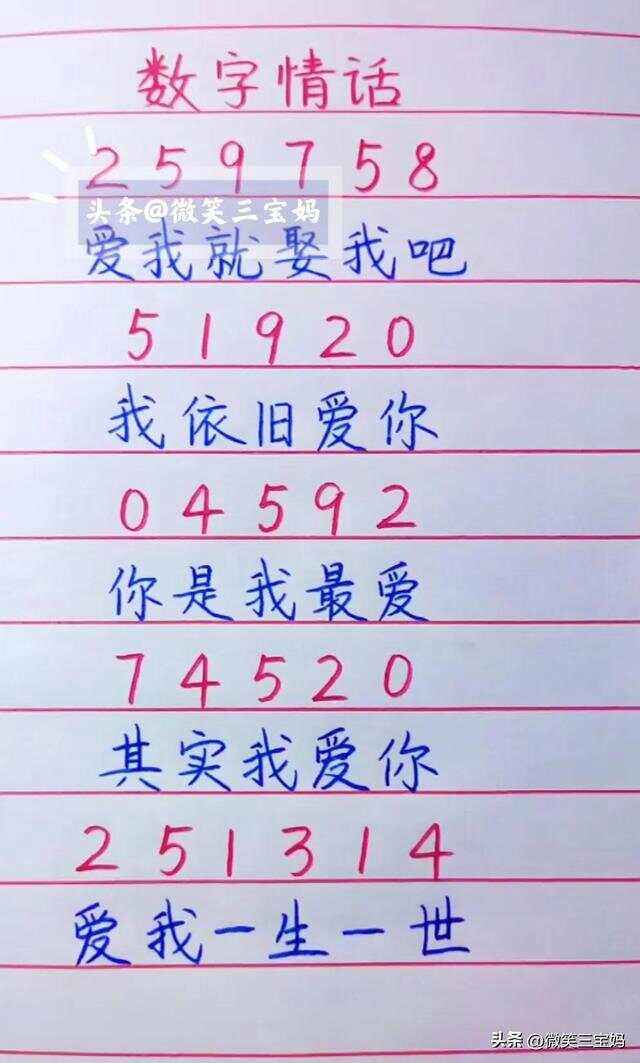 数字情话
259758
头条@微笑三宝妈
爱我就娶我吧
51920
我依旧爱你
04592
你是我最爱
74520
其实我爱你
251314
爱我一生一世
头条 @微笑三宝妈